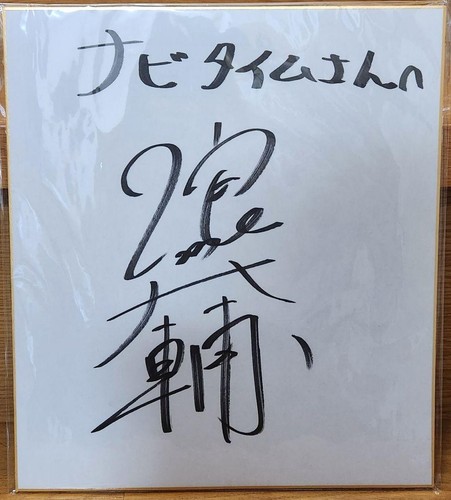 ナビタイムさんへ
大輔